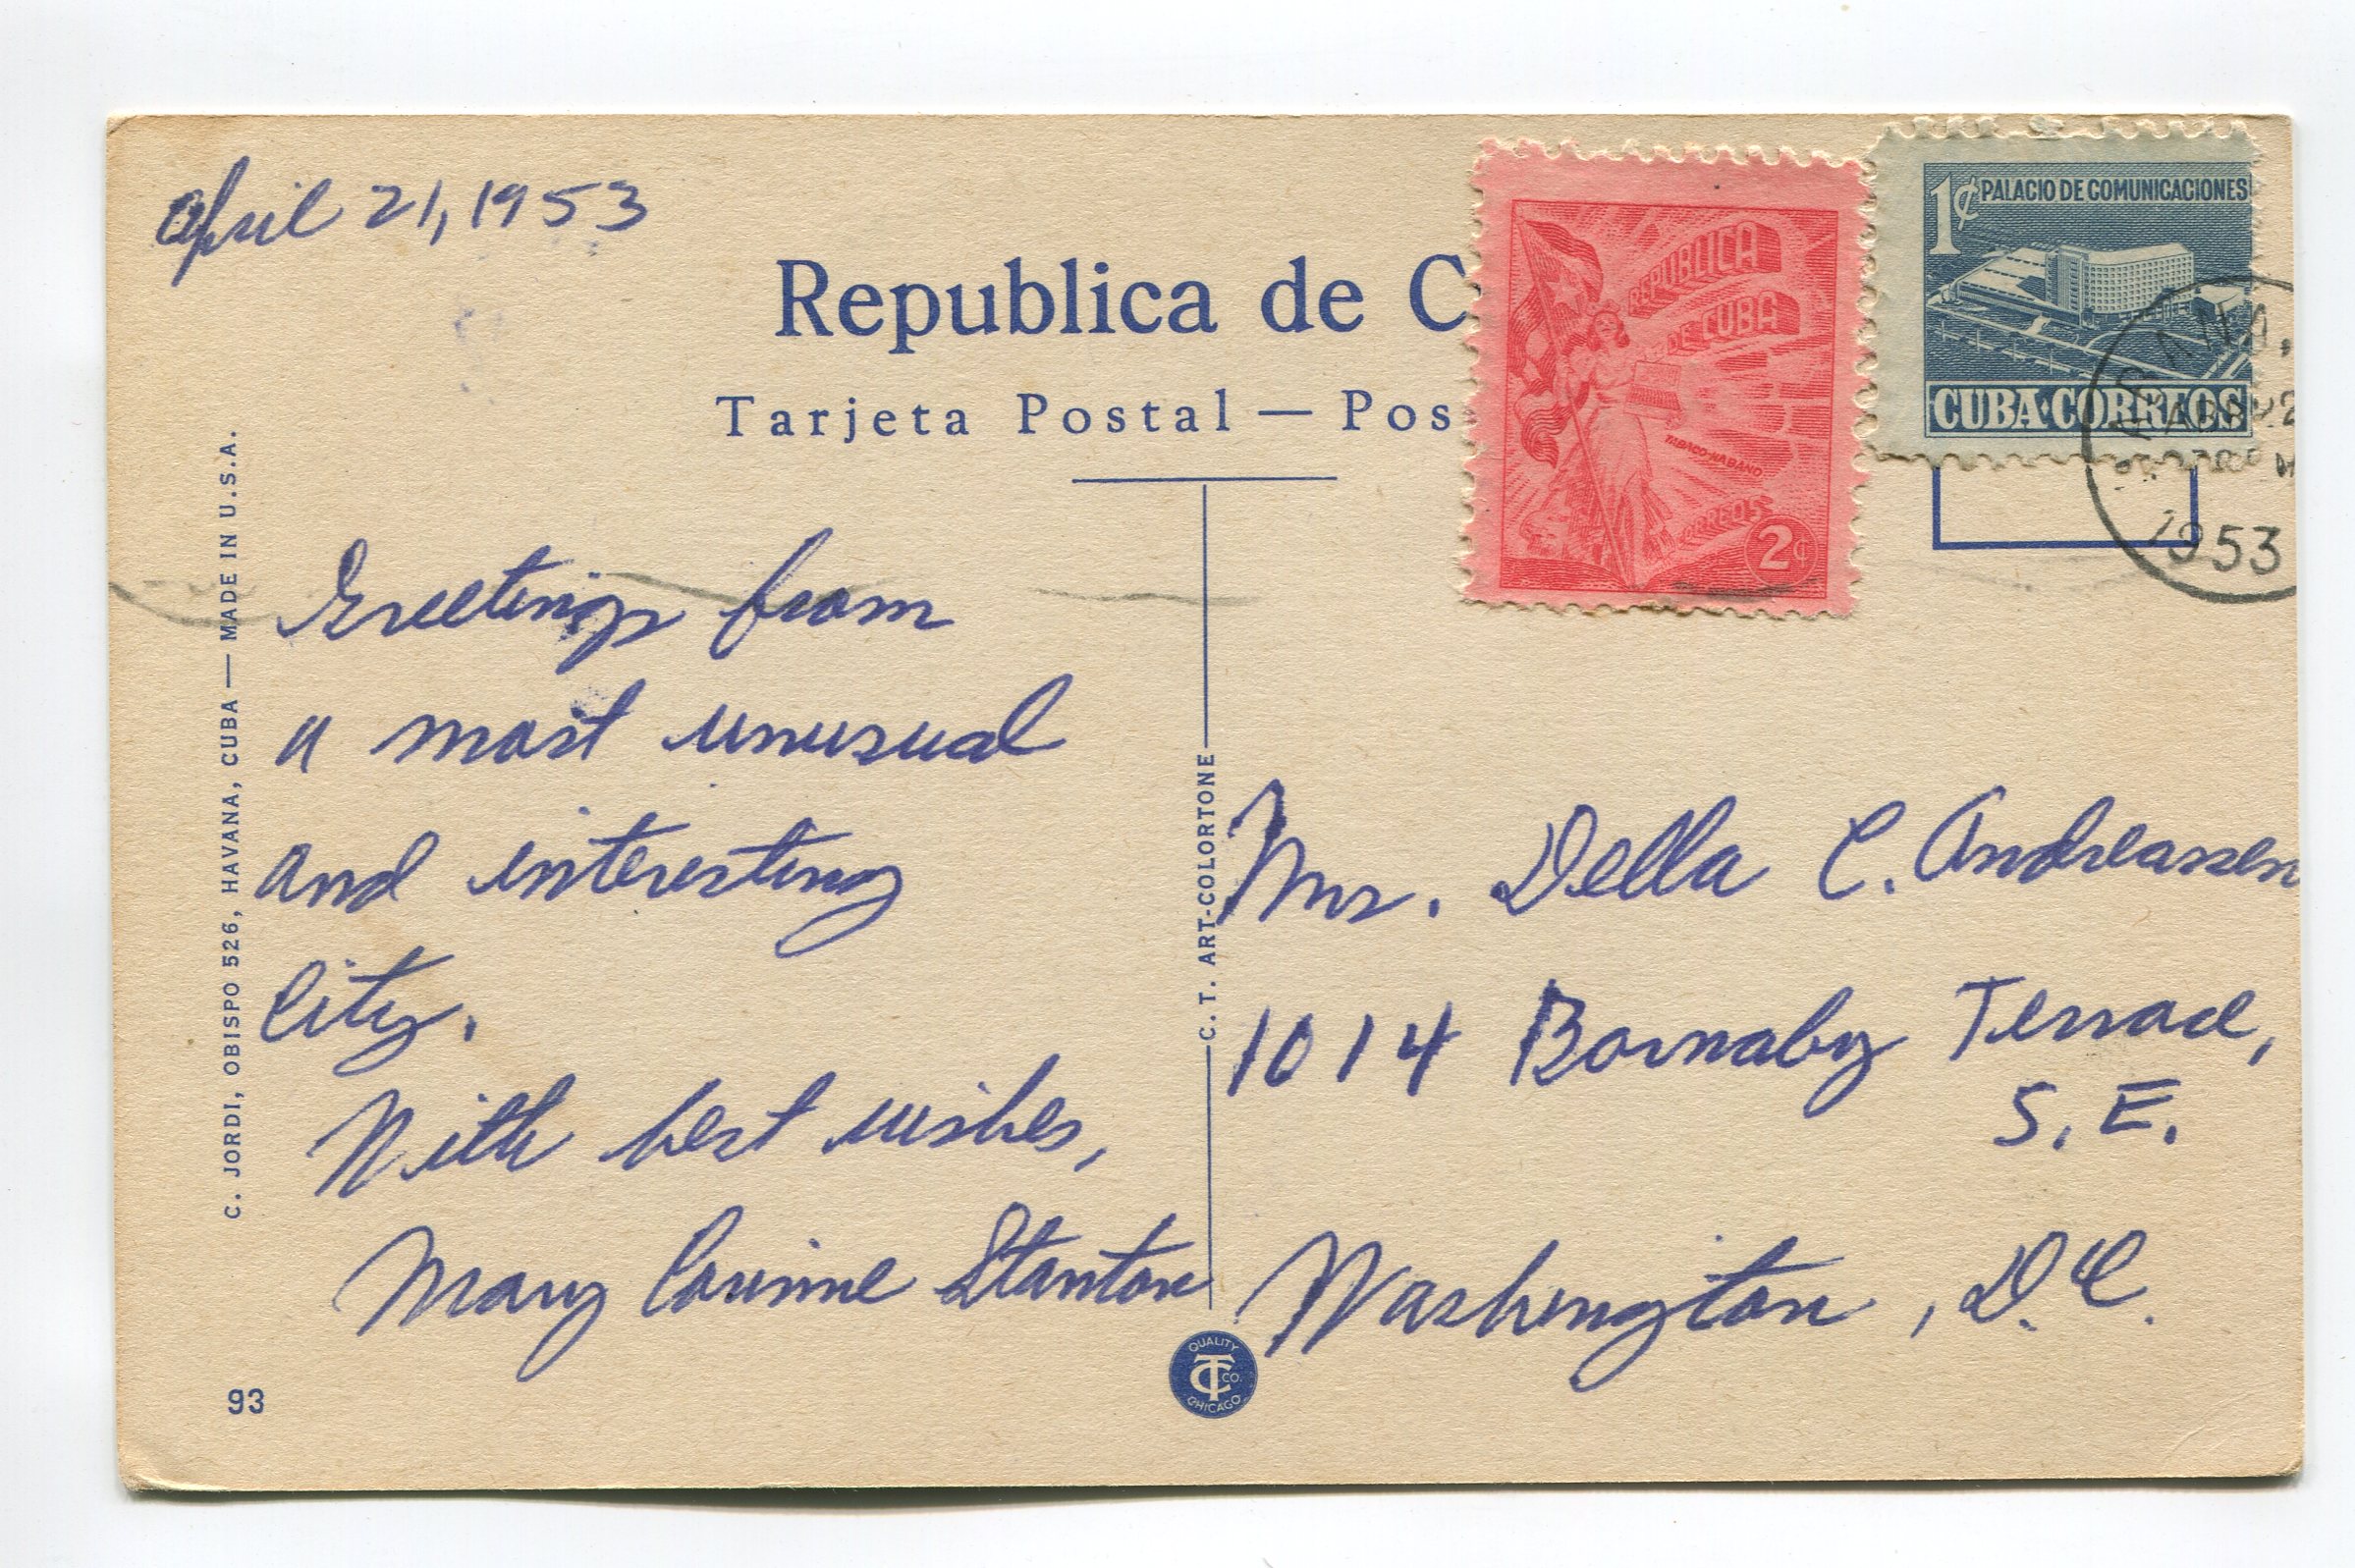 April 21, 1953
Republica de C
Tarjeta Postal — Pos
REPUBLICA
DE CUBA
TABACO HABANO
CORREOS
2¢
1¢ PALACIO DE COMUNICACIONES
CUBA·CORREOS
1953
Greetings from
a most unusual
and interesting
City.
With best wishes,
Mary Corinne Stanton
Mrs. Della C. Andreassen
1014 Barnaby Terrace,
S.E.
Washington, D.C.
C. JORDI, OBISPO 526, HAVANA, CUBA — MADE IN U.S.A.
C. T. ART-COLORTONE
QUALITY
CT CO.
CHICAGO
93